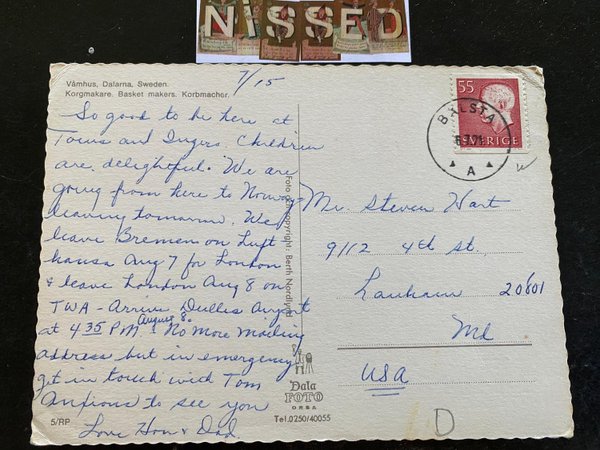 NISSED
7/15
Våmhus, Dalarna, Sweden.
Korgmakare. Basket makers. Korbmacher.
So good to be here at
Toms and Ingers. Children
are delightful. We are
going from here to Norway
leaving tomorrow. We
leave Bremen on Luft
hansa Aug 7 for London
& leave London Aug 8 on
TWA - Arrive Dulles Airport
at 4 35 PM August 8. No More Mailing
address but in emergency
get in touch with Tom
Anxious to see you
Love Hon & Dad.
5/RP
Foto och copyright: Berth Nordlund
Dala
FOTO
ORSA
Tel. 0250/40055
55
SVERIGE
BÅLSTA
A
Mr. Steven Hart
9112 4th st.
Lanham 20801
Md
USA
D